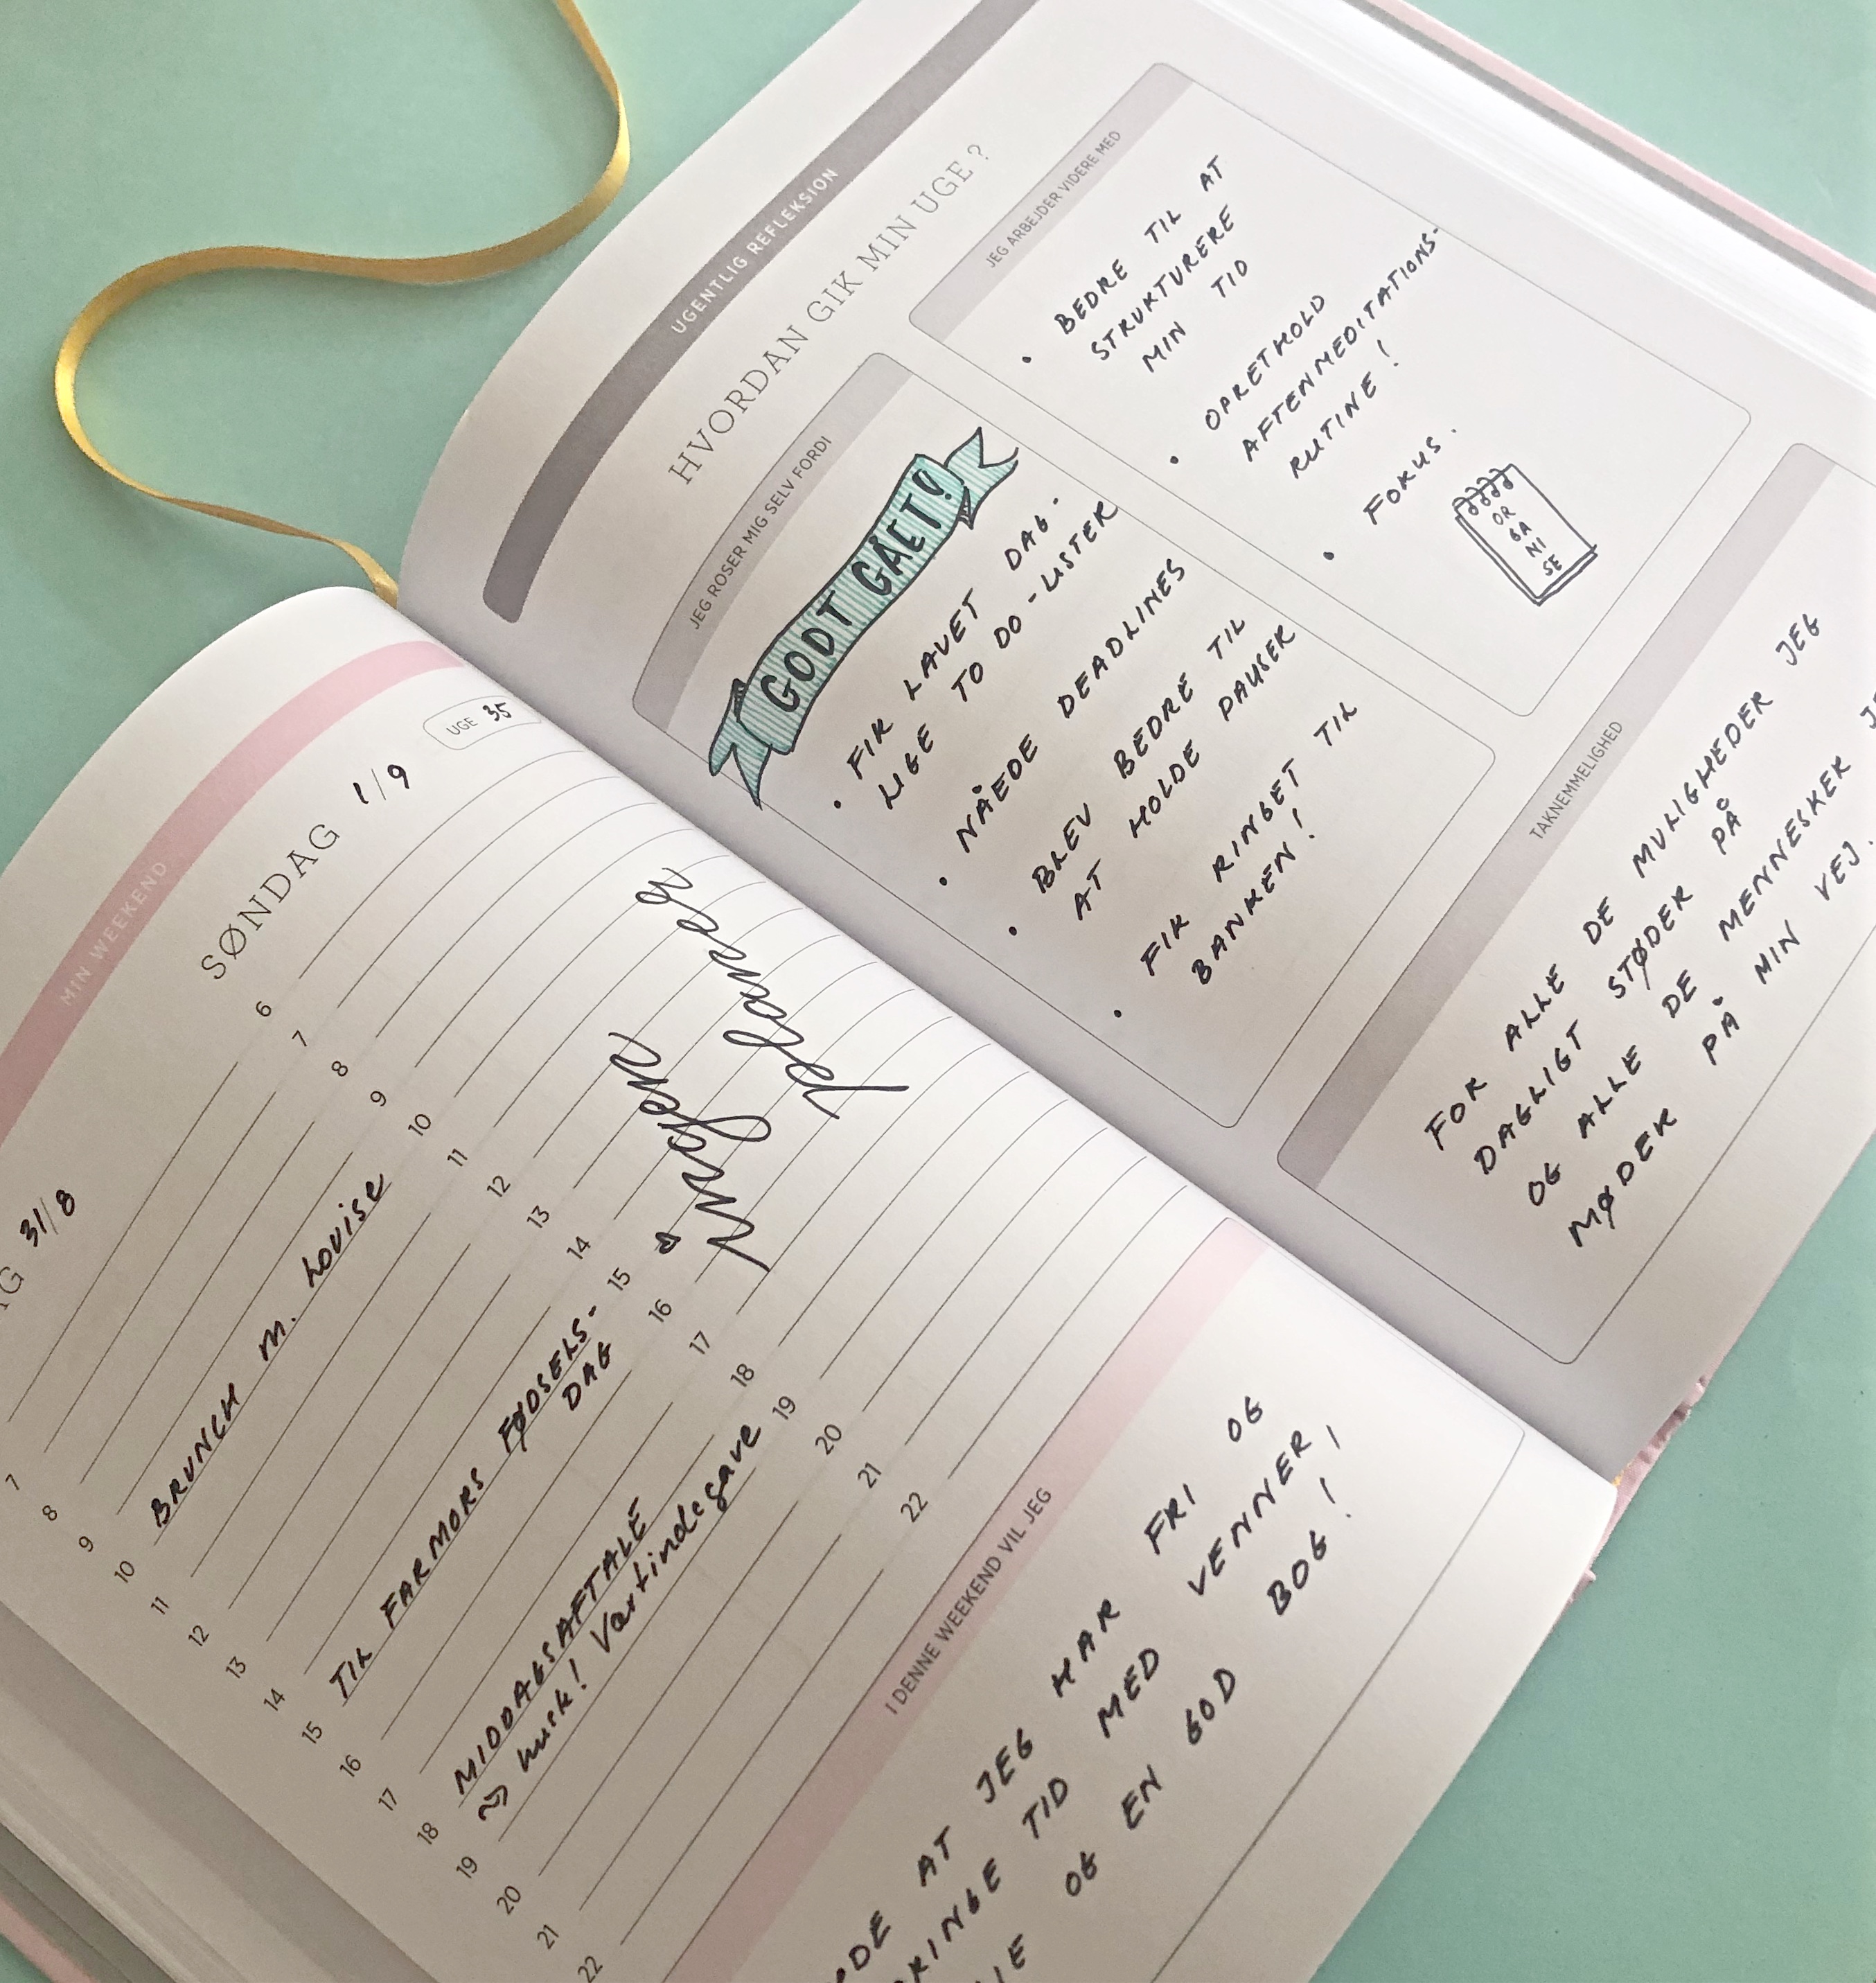 MIN WEEKEND
G 31/8
7
8
9
10 BRUNCH m. Louise
11
12
13
14
15 TIL FARMORS FØDSELS-
DAG
16
17
18 MIDDAGSAFTALE
19 husk! Værtindegave
20
21
22
SØNDAG 1/9
UGE 35
6
7
8
9
10
11
12
13
14
15
16
17
18
19
20
21
22
Ingen
planer
I DENNE WEEKEND VIL JEG
AT JEG HAR FRI OG
TID MED VENNER,
OG EN GOD BOG!
UGENTLIG REFLEKSION
HVORDAN GIK MIN UGE?
JEG ROSER MIG SELV FORDI
GODT GÅET!
• FIK LAVET DAG-
LIGE TO DO-LISTER
• NÅEDE DEADLINES
• BLEV BEDRE TIL
AT HOLDE PAUSER
• FIK RINGET TIL
BANKEN!
JEG ARBEJDER VIDERE MED
• BEDRE TIL AT
STRUKTURERE
MIN TID
• OPRETHOLD
AFTENMEDITATIONS-
RUTINE!
• FOKUS.
OR
GA
NI
SE
TAKNEMMELIGHED
FOR ALLE DE MULIGHEDER JEG
DAGLIGT STØDER PÅ
OG ALLE DE MENNESKER
MØDER PÅ MIN VEJ.